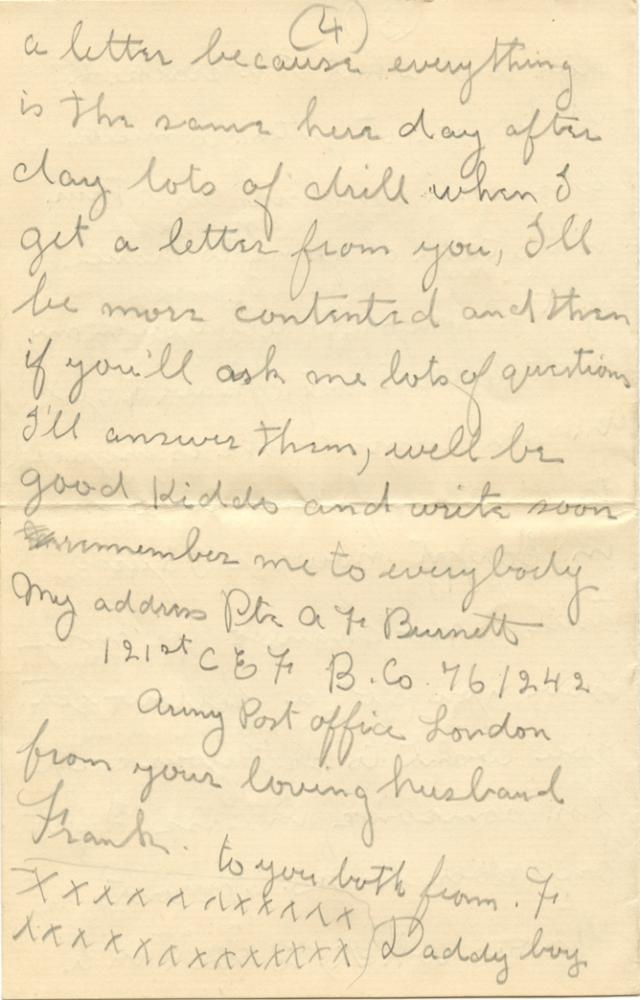 (4)
a letter because everything
is the same here day after
day lots of drill when I
get a letter from you, I'll
be more contented and then
if you'll ask me lots of questions
I'll answer them, well be
good Kiddo and write soon
remember me to everybody
My address Pte A F Burnett
121st C E F B. Co. 761242
Army Post office London
from your loving husband
Frank.
to you both from. F
X x x x x x x x x x x x
x x x x x x x x x x x x x x Daddy boy